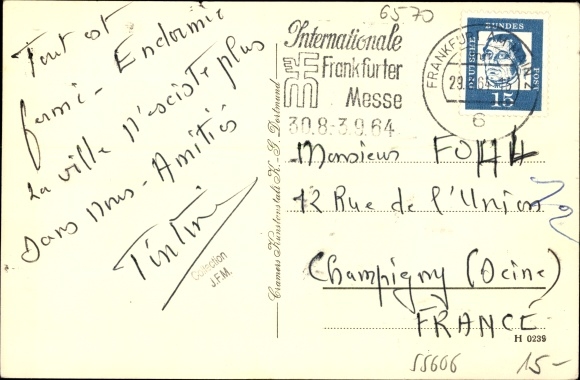 Tout est
fermé - Endormie
La ville N'existe plus
Sans nous - Amitiés
Tintin
Collection
J.F.M.
Cramers Kunstanstalt K.-G. Dortmund
6570
Internationale
Frankfurter
Messe
30.8.-3.9.64
FRANKFURT AM MAIN 2
6
DEUTSCHE BUNDES POST
15
Monsieur FOHH
12 Rue de l'Union
Champigny (Seine)
FRANCE
H 0239
55606
15-